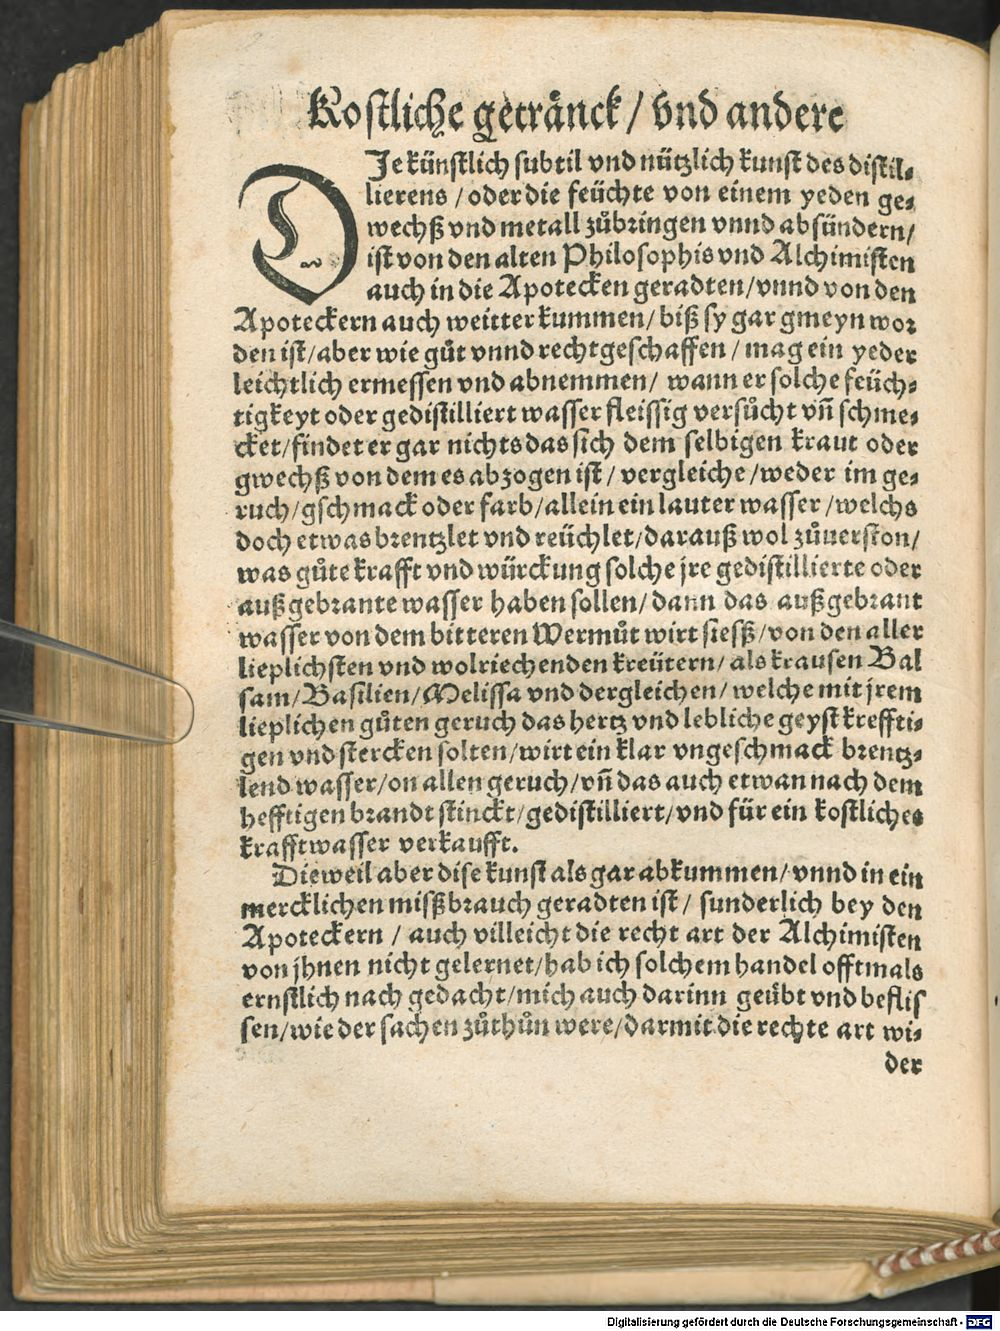 Kostliche getränck / vnd andere
DJe künstlich subtil vnd nützlich kunst des distil⸗
lierens / oder die feüchte von einem yeden ge⸗
wechß vnd metall zůbringen vnnd absündern /
ist von den alten Philosophis vnd Alchimisten
auch in die Apotecken geradten / vnnd von den
Apoteckern auch weitter kummen / biß sy gar gmeyn wor
den ist / aber wie gůt vnnd rechtgeschaffen / mag ein yeder
leichtlich ermessen vnd abnemmen / wann er solche feüch⸗
tigkeyt oder gedistilliert wasser fleissig versůcht vñ schme⸗
cket / findet er gar nichts das sich dem selbigen kraut oder
gwechß von dem es abzogen ist / vergleiche / weder im ge⸗
ruch / gschmack oder farb / allein ein lauter wasser / welchs
doch etwas brentzlet vnd reüchlet / darauß wol zůuerston /
was gůte krafft vnd würckung solche jre gedistillierte oder
außgebrante wasser haben sollen / dann das außgebrant
wasser von dem bitteren Wermůt wirt siesß / von den aller
lieplichsten vnd wolriechenden kreütern / als krausen Bal
sam / Basilien / Melissa vnd dergleichen / welche mit jrem
lieplichen gůten geruch das hertz vnd lebliche geyst kreffti⸗
gen vnd stercken solten / wirt ein klar vngeschmack brentz⸗
lend wasser / on allen geruch / vñ das auch etwan nach dem
hefftigen brandt stinckt / gedistilliert / vnd für ein kostliches
krafftwasser verkaufft.
Dieweil aber dise kunst als gar abkummen / vnnd in ein
mercklichen mißbrauch geradten ist / sunderlich bey den
Apoteckern / auch villeicht die recht art der Alchimisten
von jhnen nicht gelernet / hab ich solchem handel offtmals
ernstlich nach gedacht / mich auch darinn geübt vnd beflis
sen / wie der sachen zůthůn were / darmit die rechte art wi⸗
der
Digitalisierung gefördert durch die Deutsche Forschungsgemeinschaft - DFG